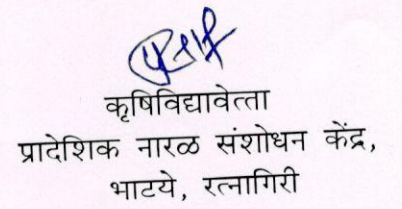 कृषिविद्यावेत्ता
प्रादेशिक नारळ संशोधन केंद्र,
भाट्ये, रत्नागिरी